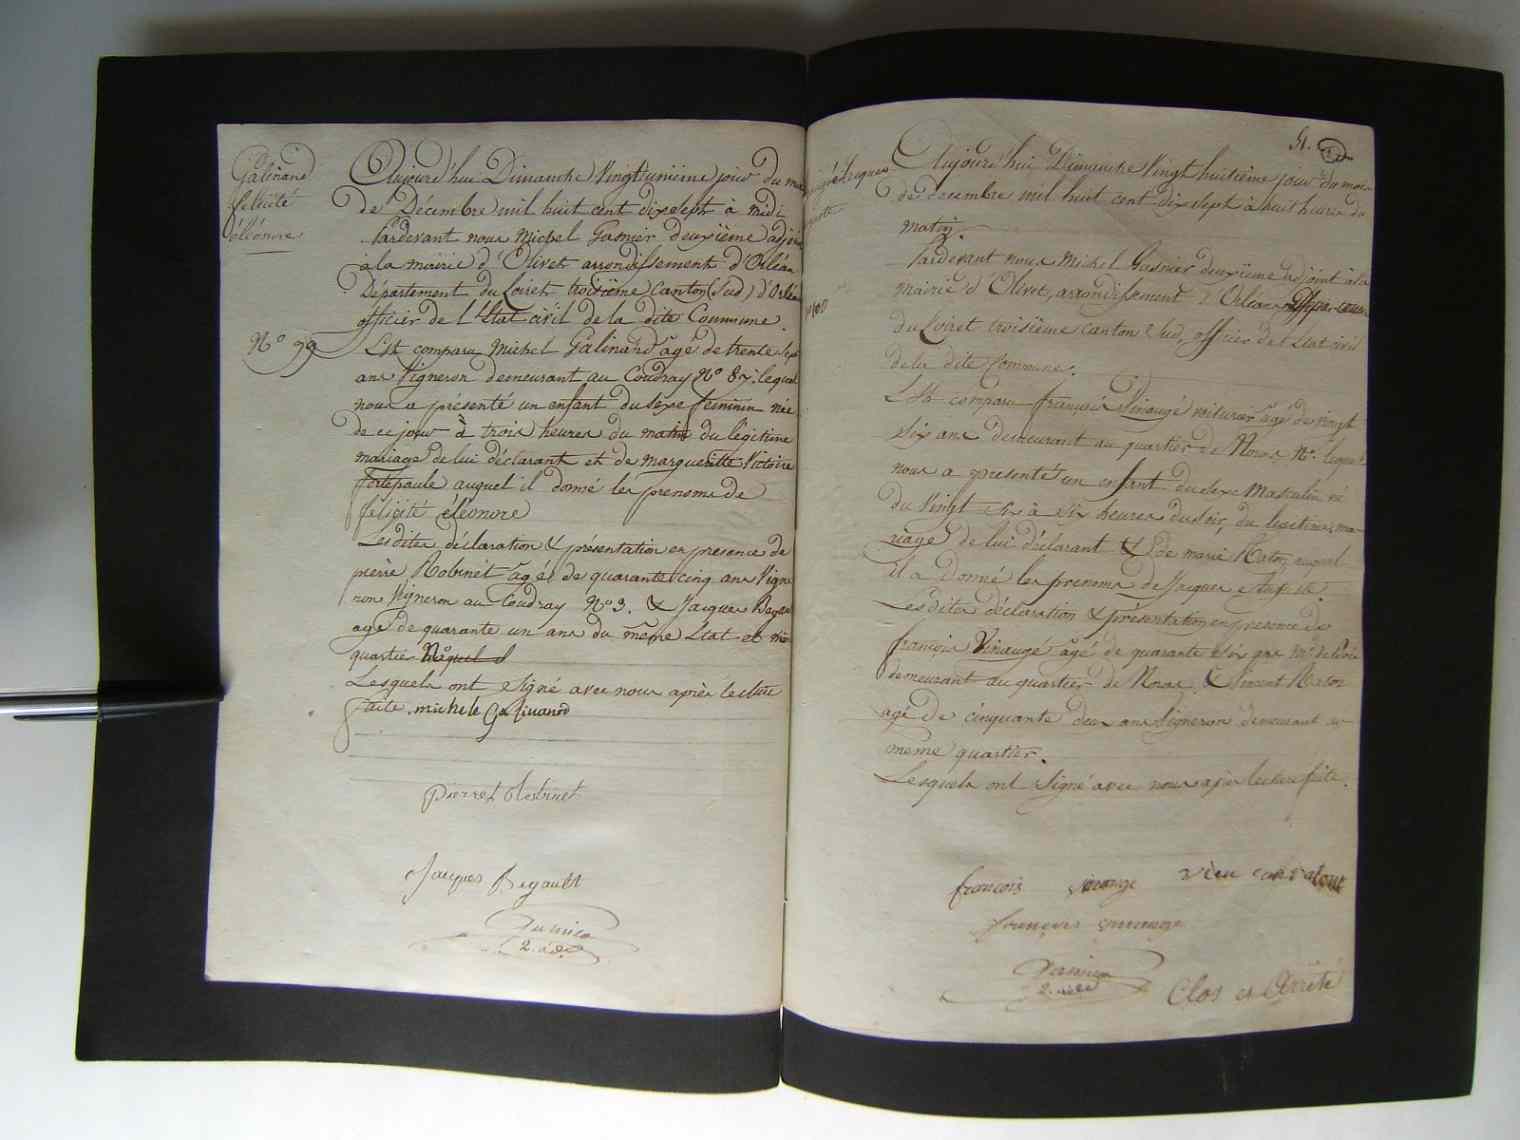 Galinand
félicité
éléonore
N° 99
Aujourd'hui Dimanche Vingt unième jour du mois
de Décembre mil huit cent dix sept à midi
Pardevant nous Michel Gasnier deuxième adjoint
à la mairie d'Olivet arrondissement d'Orléans
Département du Loiret troisième Canton (Sud) d'Orléans
officier de l'Etat civil de la dite Commune.
Est comparu Michel Galinand agé de trente sept
ans Vigneron demeurant au Coudray N° 87. lequel
nous a présenté un enfant du sexe feminin née
de ce jour à trois heures du matin du légitime
mariage de lui déclarant et de margueritte Victoire
Fortepaule auquel il donné les prenoms de
félicité éléonore
Lesdites déclaration & présentation en presence de
pierre Robinet agé de quarante cinq ans Vigne
ron Vigneron au Coudray N° 3. & Jacques Begault
agé de quarante un ans du même Etat et même
quartier
Lesquels ont signé avec nous après lecture
faite. michele Galinand
Jacques Begault
2. adj
51.
N° 100
Aujourd'hui Dimanche Vingt huitième jour du mois
de decembre mil huit cent dix sept à huit heures du
matin.
Pardevant nous Michel Gasnier deuxième adjoint à la
mairie d'Olivet, arrondissement d'Orléans
du Loiret troisième canton Sud, officier de l'Etat civil
de la dite Commune.
Est comparu françois Vinauge voiturier agé de vingt
six ans demeurant au quartier de N° lequel
nous a presenté un enfant du sexe Masculin né
du Vingt six à six heures du soir, du legitime ma-
riage de lui déclarant & de marie auquel
il a Donné les prenoms de Jacques
Lesdites déclaration & présentation en presence de
françois Vinauge agé de quarante six ans
demeurant au quartier de
agé de cinquante deux ans Vigneron demeurant au
même quartier.
Lesquels ont signé avec nous après lecture faite.
françois
françois
2. adj
Clos et Arrêté